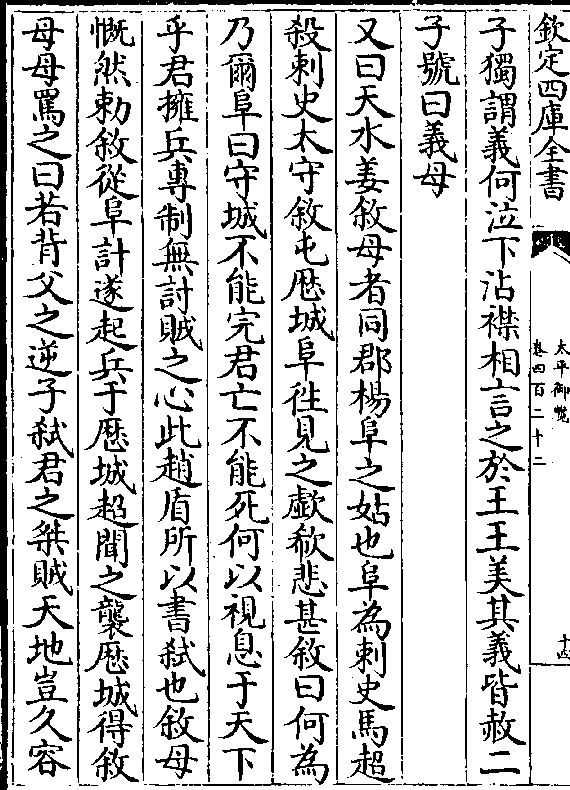 欽定四庫全書
太平御覽
卷四百二十二
十四
子獨謂義何泣下沾襟相言之於王王美其義皆赦二
子號曰義母
又曰天水姜敘母者同郡楊阜之姑也阜為刺史馬超
殺刺史太守敘屯歷城阜徃見之歔欷悲甚敘曰何為
乃爾阜曰守城不能完君亡不能死何以視息于天下
乎君擁兵專制無討賊之心此趙盾所以書弒也敘母
慨然勅敘從阜計遂起兵于歷城超聞之襲歷城得敘
母母罵之曰若背父之逆子弒君之桀賊天地豈久容